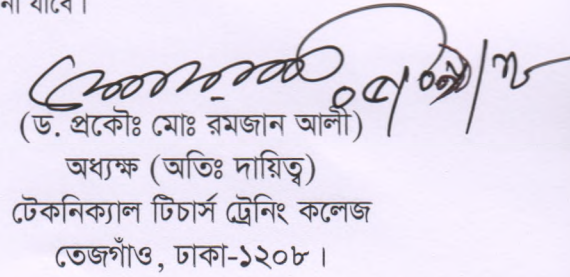 যাবে।
(ড. প্রকৌঃ মোঃ রমজান আলী)
অধ্যক্ষ (অতিঃ দায়িত্ব)
টেকনিক্যাল টিচার্স ট্রেনিং কলেজ
তেজগাঁও, ঢাকা-১২০৮।